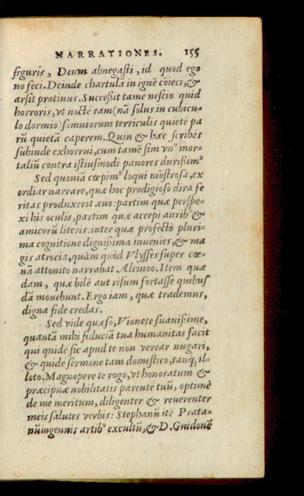 NARRATIONES. 155
figuris, Deum abnegasti, id quod ego
no feci. Deinde chartulā in ignē coieci, &
arsit protinus. Successit tame nescio quid
horroris, vt noctē eam (nā solus in cubicu-
lo dormio) somniorum terriculis quietē pa-
rū quietā caperem. Quin & hæc scribēs
subinde exhorrui, cum tamē sim vn' mor-
taliū contra istiusmodi pauores durissim'
Sed quoniā cœpim' loqui mōstrosa, ex
ordiar narrare, quæ hoc prodigioso dira fe
ritas produxerit æuo: partim quæ perspe-
xi his oculis, partim quæ accepi aurib' &
amicorū literis. inter quæ profectò pluri-
ma cognitione dignissima inuenies, & ma
gis atrocia, quàm quòd Vlysses super cœ-
na attonito narrabat Alcinoo. Item quæ
dam, quæ bilē aut risum fortasse quibus
dā mouebunt. Ergo iam, quæ trademus,
digna fide credas.
Sed vide quæso, Vionete suauissime,
quantā mihi fiduciā tua humanitas facit
qui quidē sic apud te non verear nugari,
& quidē sermone tam domestico, tanq̄, il-
loto. Magnopere te rogo, vt honoratum &
præcipuæ nobilitatis parente tuū, optimè
de me meritum, diligenter & reuerenter
meis salutes verbis: Stephanū itē Prata-
nū ingenuis artib' excultū, & D. Guidonē